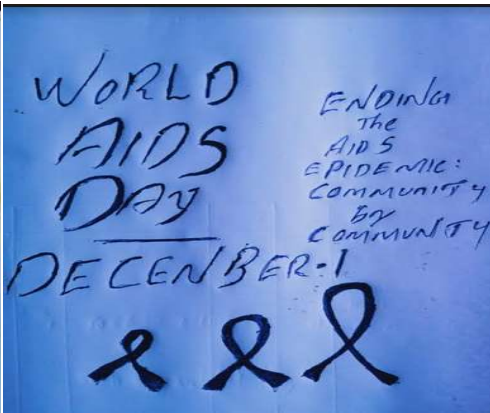 WORLD
AIDS
DAY
DECENBER-1
ENDING
The
AIDS
EPIDEMIC:
COMMUNITY
by
COMMUNITY